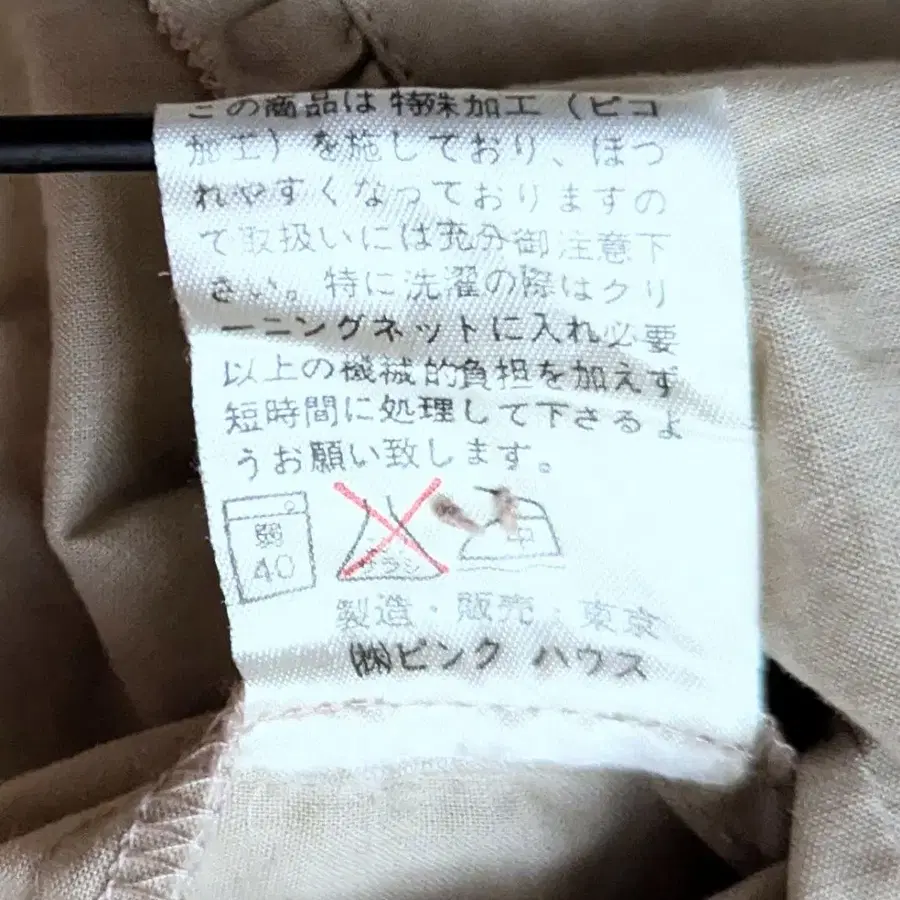 この商品は特殊加工（ピコ
加工）を施しており、ほつ
れやすくなっておりますの
で取扱いには充分御注意下
さい。特に洗濯の際はクリ
ーニングネットに入れ必要
以上の機械的負担を加えず
短時間に処理して下さるよ
うお願い致します。
弱
40
中
製造・販売・東京
㈱ピンク ハウス